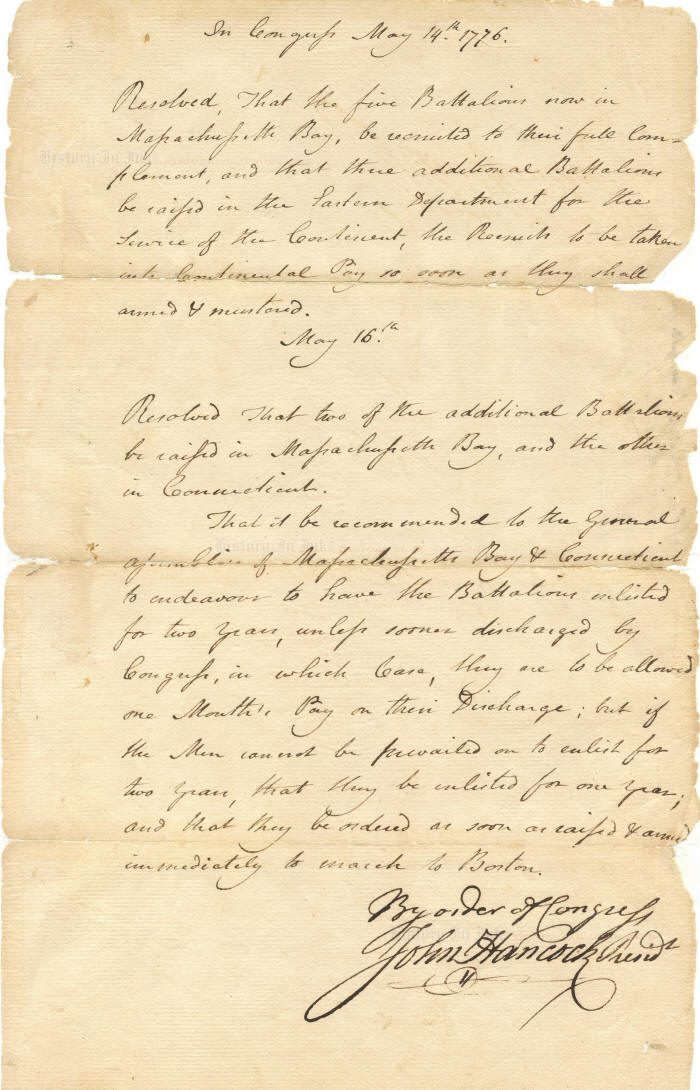 In Congress May 14.th 1776.
Resolved, That the five Battalions now in
Massachussetts Bay, be recruited to their full Com=
plement, and that three additional Battalions
be raised in the Eastern Department for the
Service of the Continent, the Recruits to be taken
into Continental Pay so soon as they shall
armed & mustered.
May 16.th
Resolved That two of the additional Battalions
be raised in Massachussetts Bay, and the other
in Connecticut.
That it be recommended to the General
Assemblies of Massachussetts Bay & Connecticut
to endeavour to have the Battalions enlisted
for two years, unless sooner discharged by
Congress, in which Case, they are to be allowed
one Month's Pay on their Discharge; but if
the Men cannot be prevailed on to enlist for
two years, that they be enlisted for one year;
and that they be ordered as soon as raised & armed
immediately to march to Boston.
By order of Congress
John Hancock Presid.t
History In Ink
History In Ink